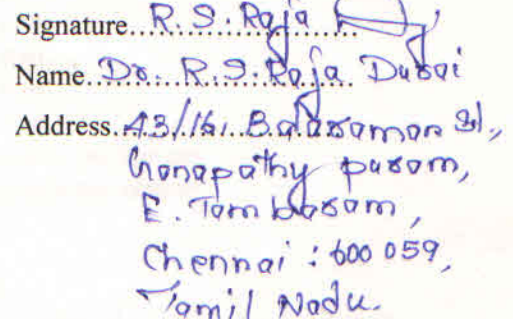 Signature...R. S. Raja
Name...Dr. R. S. Raja Durai
Address...A3/16, Balaraman St.,
Ganapathy puram,
E. Tambaram,
Chennai : 600 059,
Tamil Nadu.